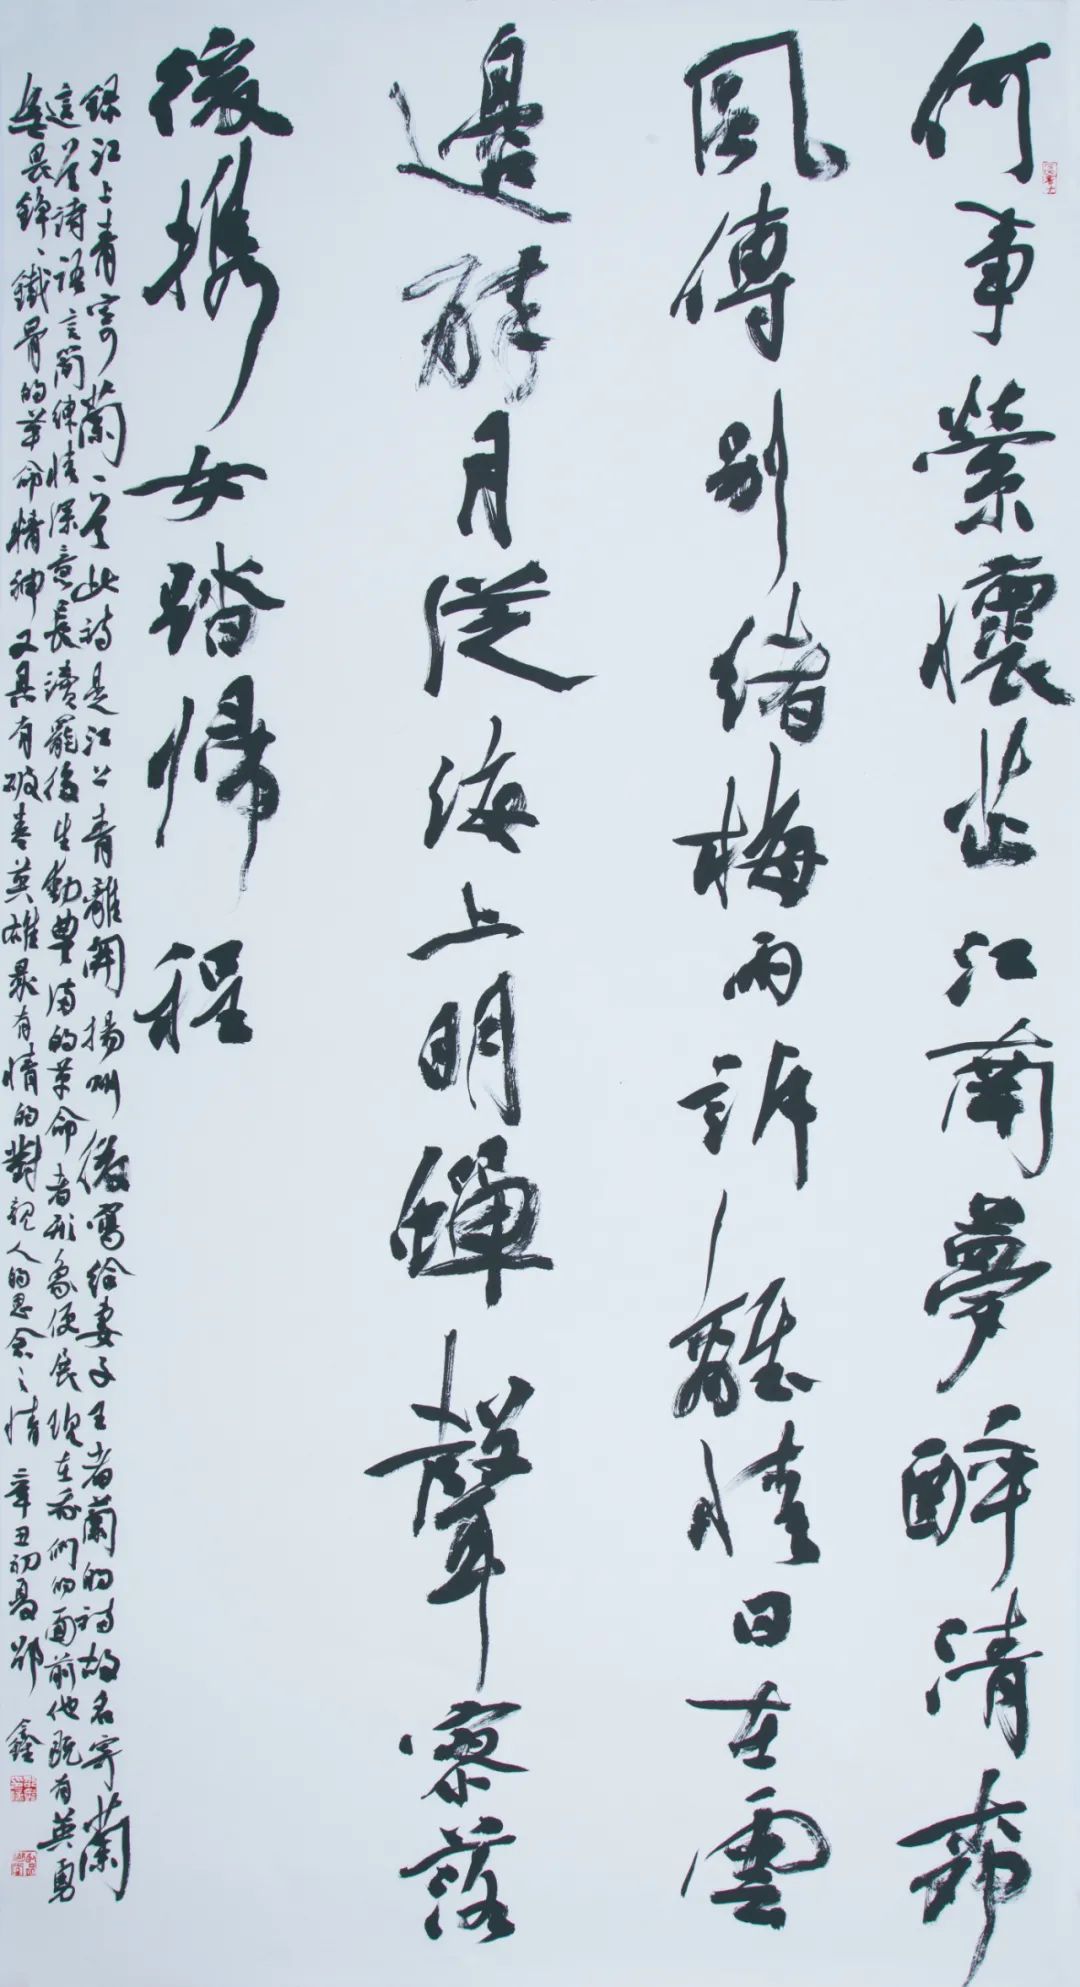 何事縈懷芷江南夢醉清帘
風傳別緒梅雨訴離情日在雲
邊醉月從海上明蟬聲寥落
後攜女踏歸程
錄江上青寄蘭一首此詩是江上青離開揚州後寫給妻子王者蘭的詩故名寄蘭
這首詩語言簡練情深意長讀罷後生動豐滿的革命者形象便展現在我們的面前他既有英勇
無畏錚錚鐵骨的革命精神又具有破春英雄最有情的對親人的思念之情 辛丑初夏 鄧鑫